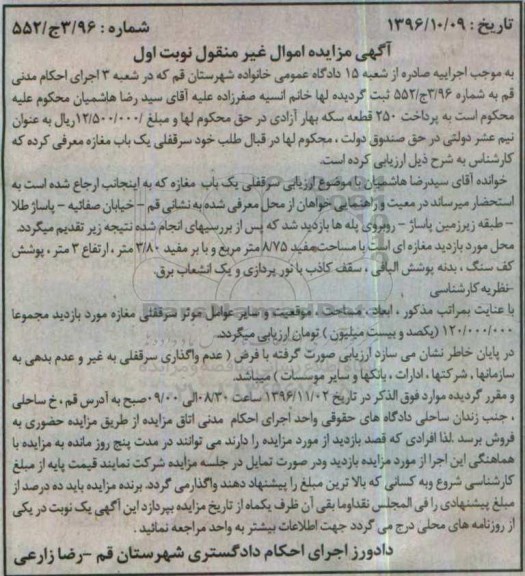 تاریخ : ۱۳۹۶/۱۰/۰۹ شماره : ۳/۹۶ج/۵۵۲
آگهی مزایده اموال غیر منقول نوبت اول
به موجب اجراییه صادره از شعبه ۱۵ دادگاه عمومی خانواده شهرستان قم که در شعبه ۳ اجرای احکام مدنی
قم به شماره ۳/۹۶ج/۵۵۲ ثبت گردیده لها خانم انسیه صفرزاده علیه آقای سید رضا هاشمیان محکوم علیه
محکوم است به پرداخت ۲۵۰ قطعه سکه بهار آزادی در حق محکوم لها و مبلغ ۱۲/۵۰۰/۰۰۰ریال به عنوان
نیم عشر دولتی در حق صندوق دولت ، محکوم لها در قبال طلب خود سرقفلی یک باب مغازه معرفی کرده که
کارشناس به شرح ذیل ارزیابی کرده است.
خوانده آقای سیدرضا هاشمیان با موضوع ارزیابی سرقفلی یک باب مغازه که به اینجانب ارجاع شده است به
استحضار میرساند در معیت و راهنمایی خواهان از محل معرفی شده به نشانی قم – خیابان صفائیه – پاساژ طلا
– طبقه زیرزمین پاساژ – روبروی پله ها بازدید شد که پس از بررسیهای انجام شده نتیجه زیر تقدیم میگردد.
محل مورد بازدید مغازه ای است با مساحت مفید ۸/۷۵ متر مربع و با بر مفید ۳/۸۰ متر ، ارتفاع ۳ متر ، پوشش
کف سنگ ، بدنه پوشش الیافی ، سقف کاذب با نور پردازی و یک انشعاب برق.
-نظریه کارشناسی
با عنایت بمراتب مذکور ، ابعاد ، مساحت ، موقعیت و سایر عوامل موثر سرقفلی مغازه مورد بازدید مجموعا
۱۲۰/۰۰۰/۰۰۰ (یکصد و بیست میلیون ) تومان ارزیابی میگردد.
در پایان خاطر نشان می سازد ارزیابی صورت گرفته با فرض ( عدم واگذاری سرقفلی به غیر و عدم بدهی به
سازمانها ، شرکتها ، ادارات ، بانکها و سایر موسسات ) میباشد.
و مقرر گردیده موارد فوق الذکر در تاریخ ۱۳۹۶/۱۱/۰۲ ساعت ۰۸/۳۰الی ۰۹/۰۰صبح به آدرس قم ، خ ساحلی
، جنب زندان ساحلی دادگاه های حقوقی واحد اجرای احکام مدنی اتاق مزایده از طریق مزایده حضوری به
فروش برسد .لذا افرادی که قصد بازدید از مورد مزایده را دارند می توانند در مدت پنج روز مانده به مزایده با
هماهنگی این اجرا از مورد مزایده بازدید ودر صورت تمایل در جلسه مزایده شرکت نمایند قیمت پایه از مبلغ
کارشناسی شروع وبه کسانی که بالا ترین مبلغ را پیشنهاد دهند واگذارمی گردد. برنده مزایده باید ده درصد از
مبلغ پیشنهادی را فی المجلس نقداوما بقی آن ظرف یکماه از تاریخ مزایده بپردازد این آگهی یک نوبت در یکی
از روزنامه های محلی درج می گردد جهت اطلاعات بیشتر به واحد مراجعه نمائید .
دادورز اجرای احکام دادگستری شهرستان قم –رضا زارعی